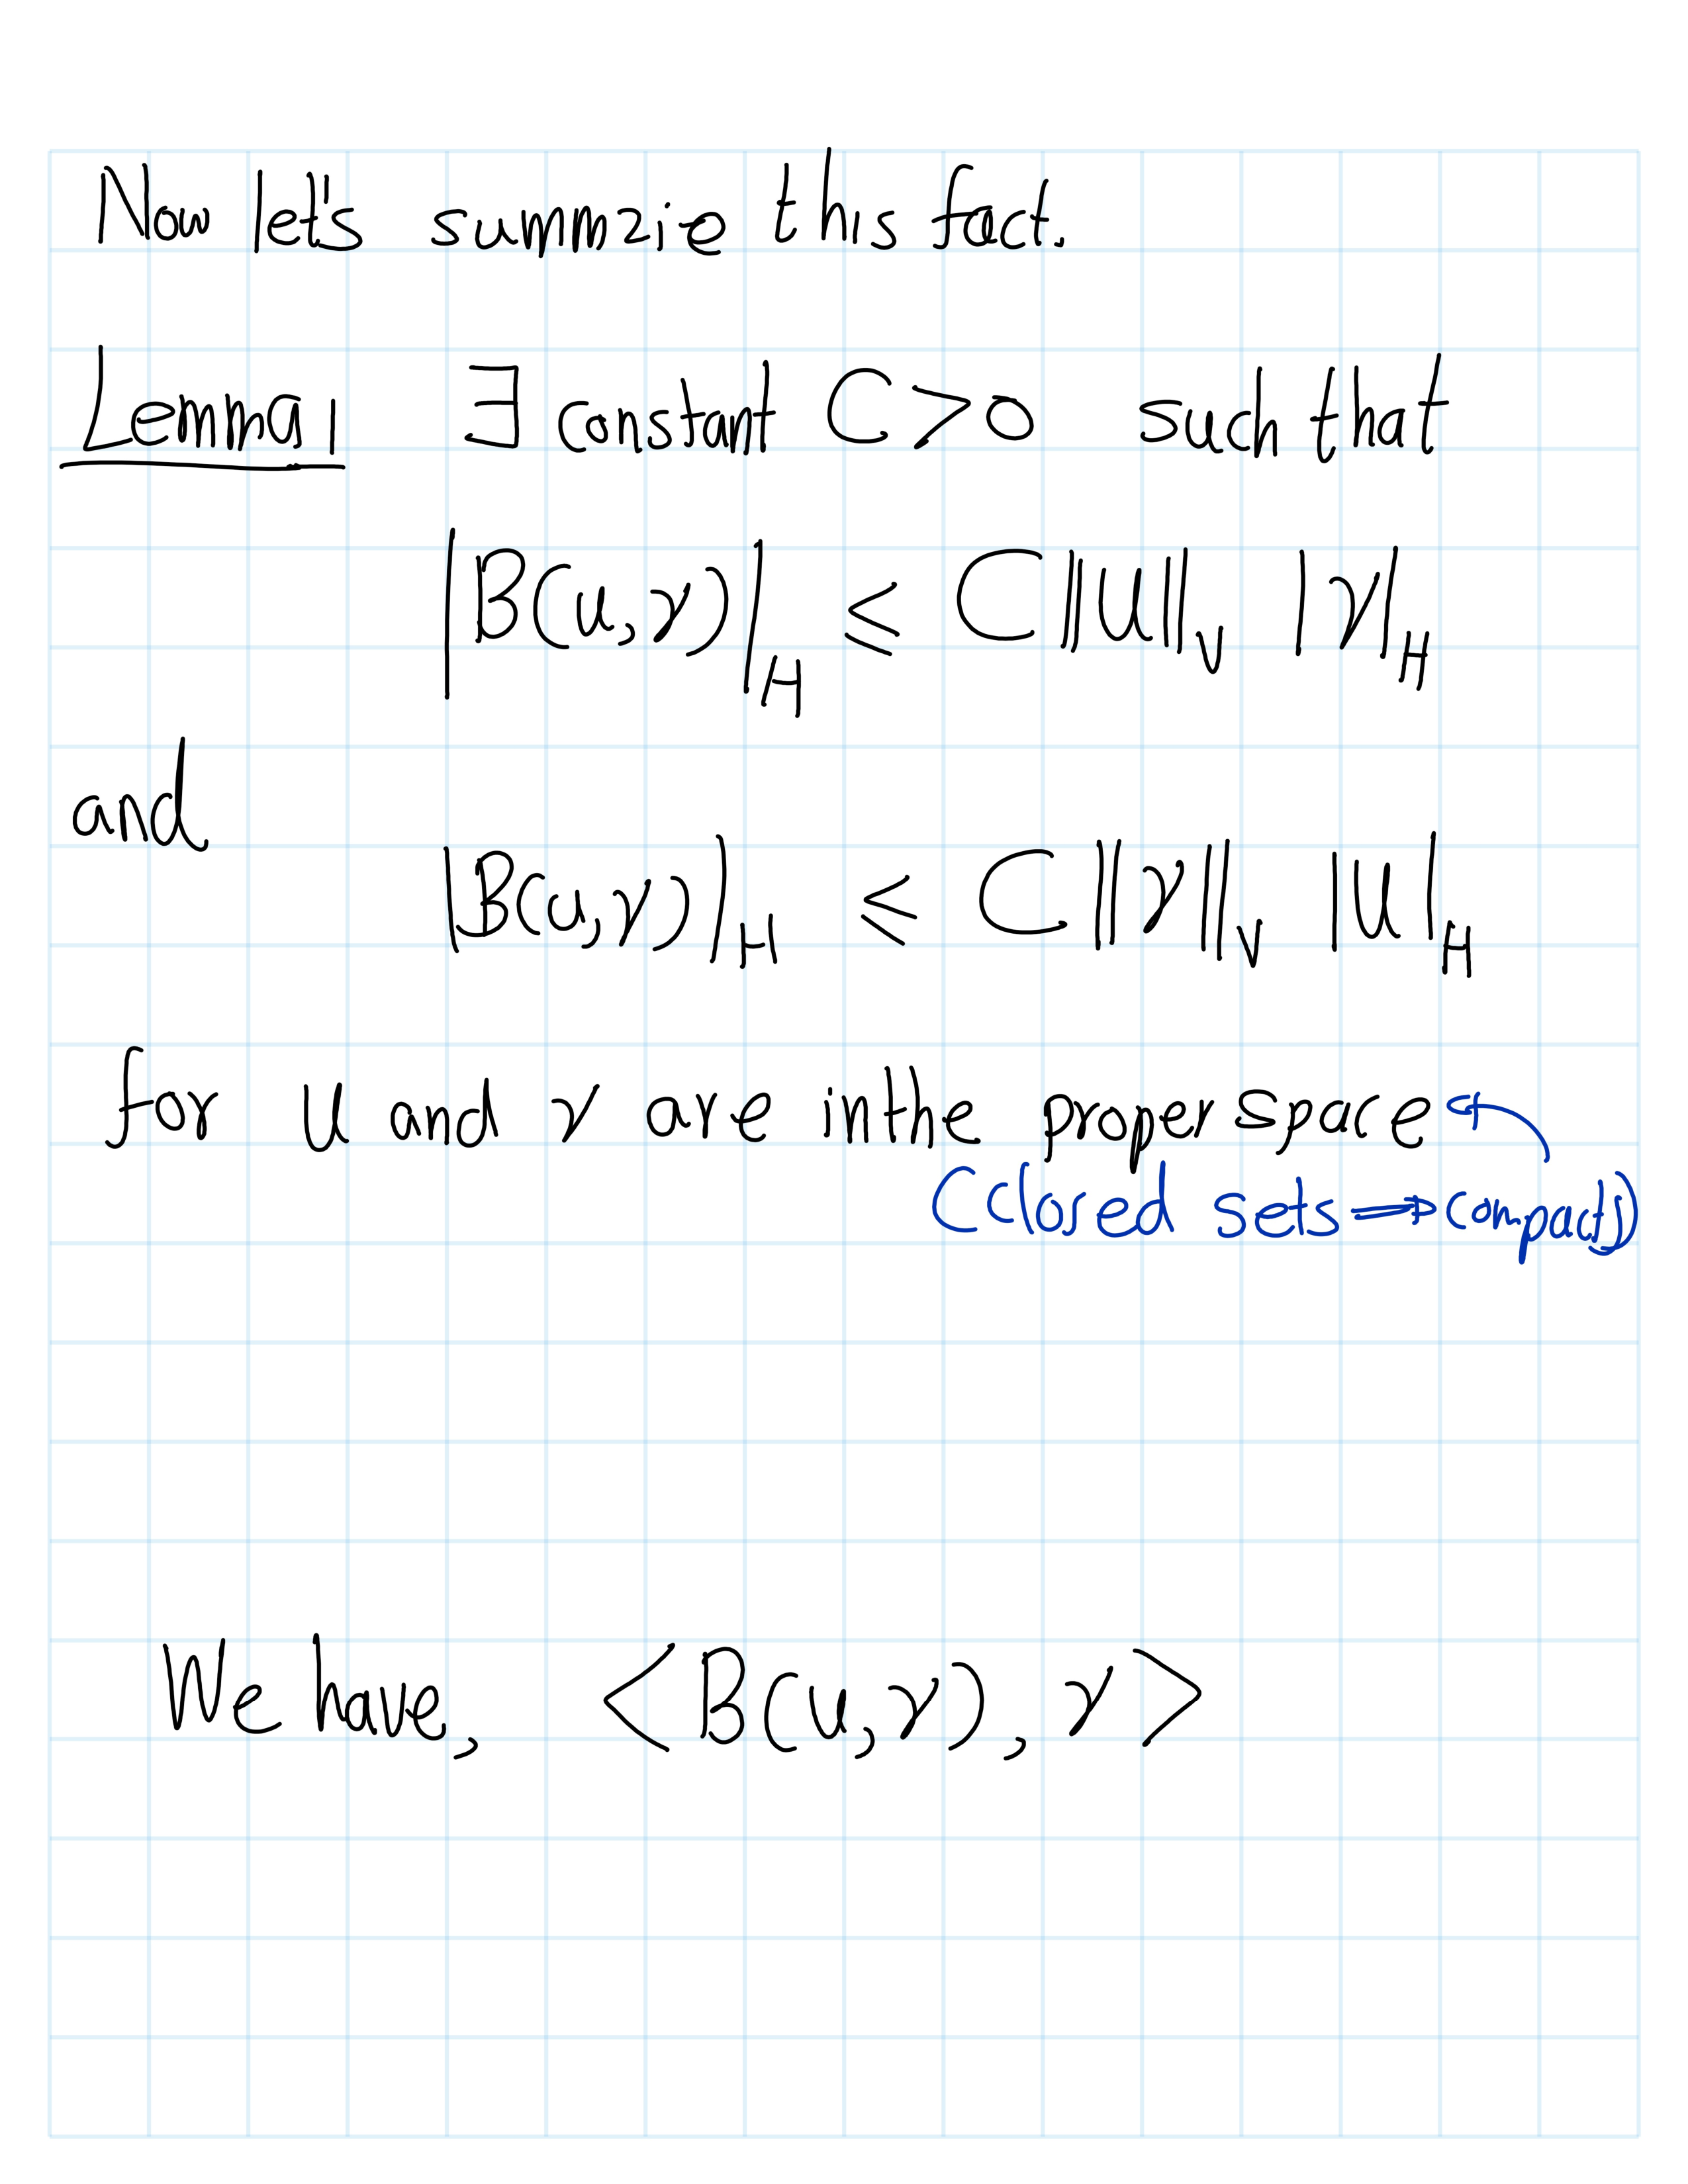 Now let's summzie this fact.
Lemma ∃ constant C>0 such that
|B(u,v)|_H ≤ C||u||_V |v|_H
and
|B(u,v)|_H ≤ C||v||_V |u|_H
for u and v are in the proper space
(closed sets ⇒ compact)
We have, <B(u,v), v>